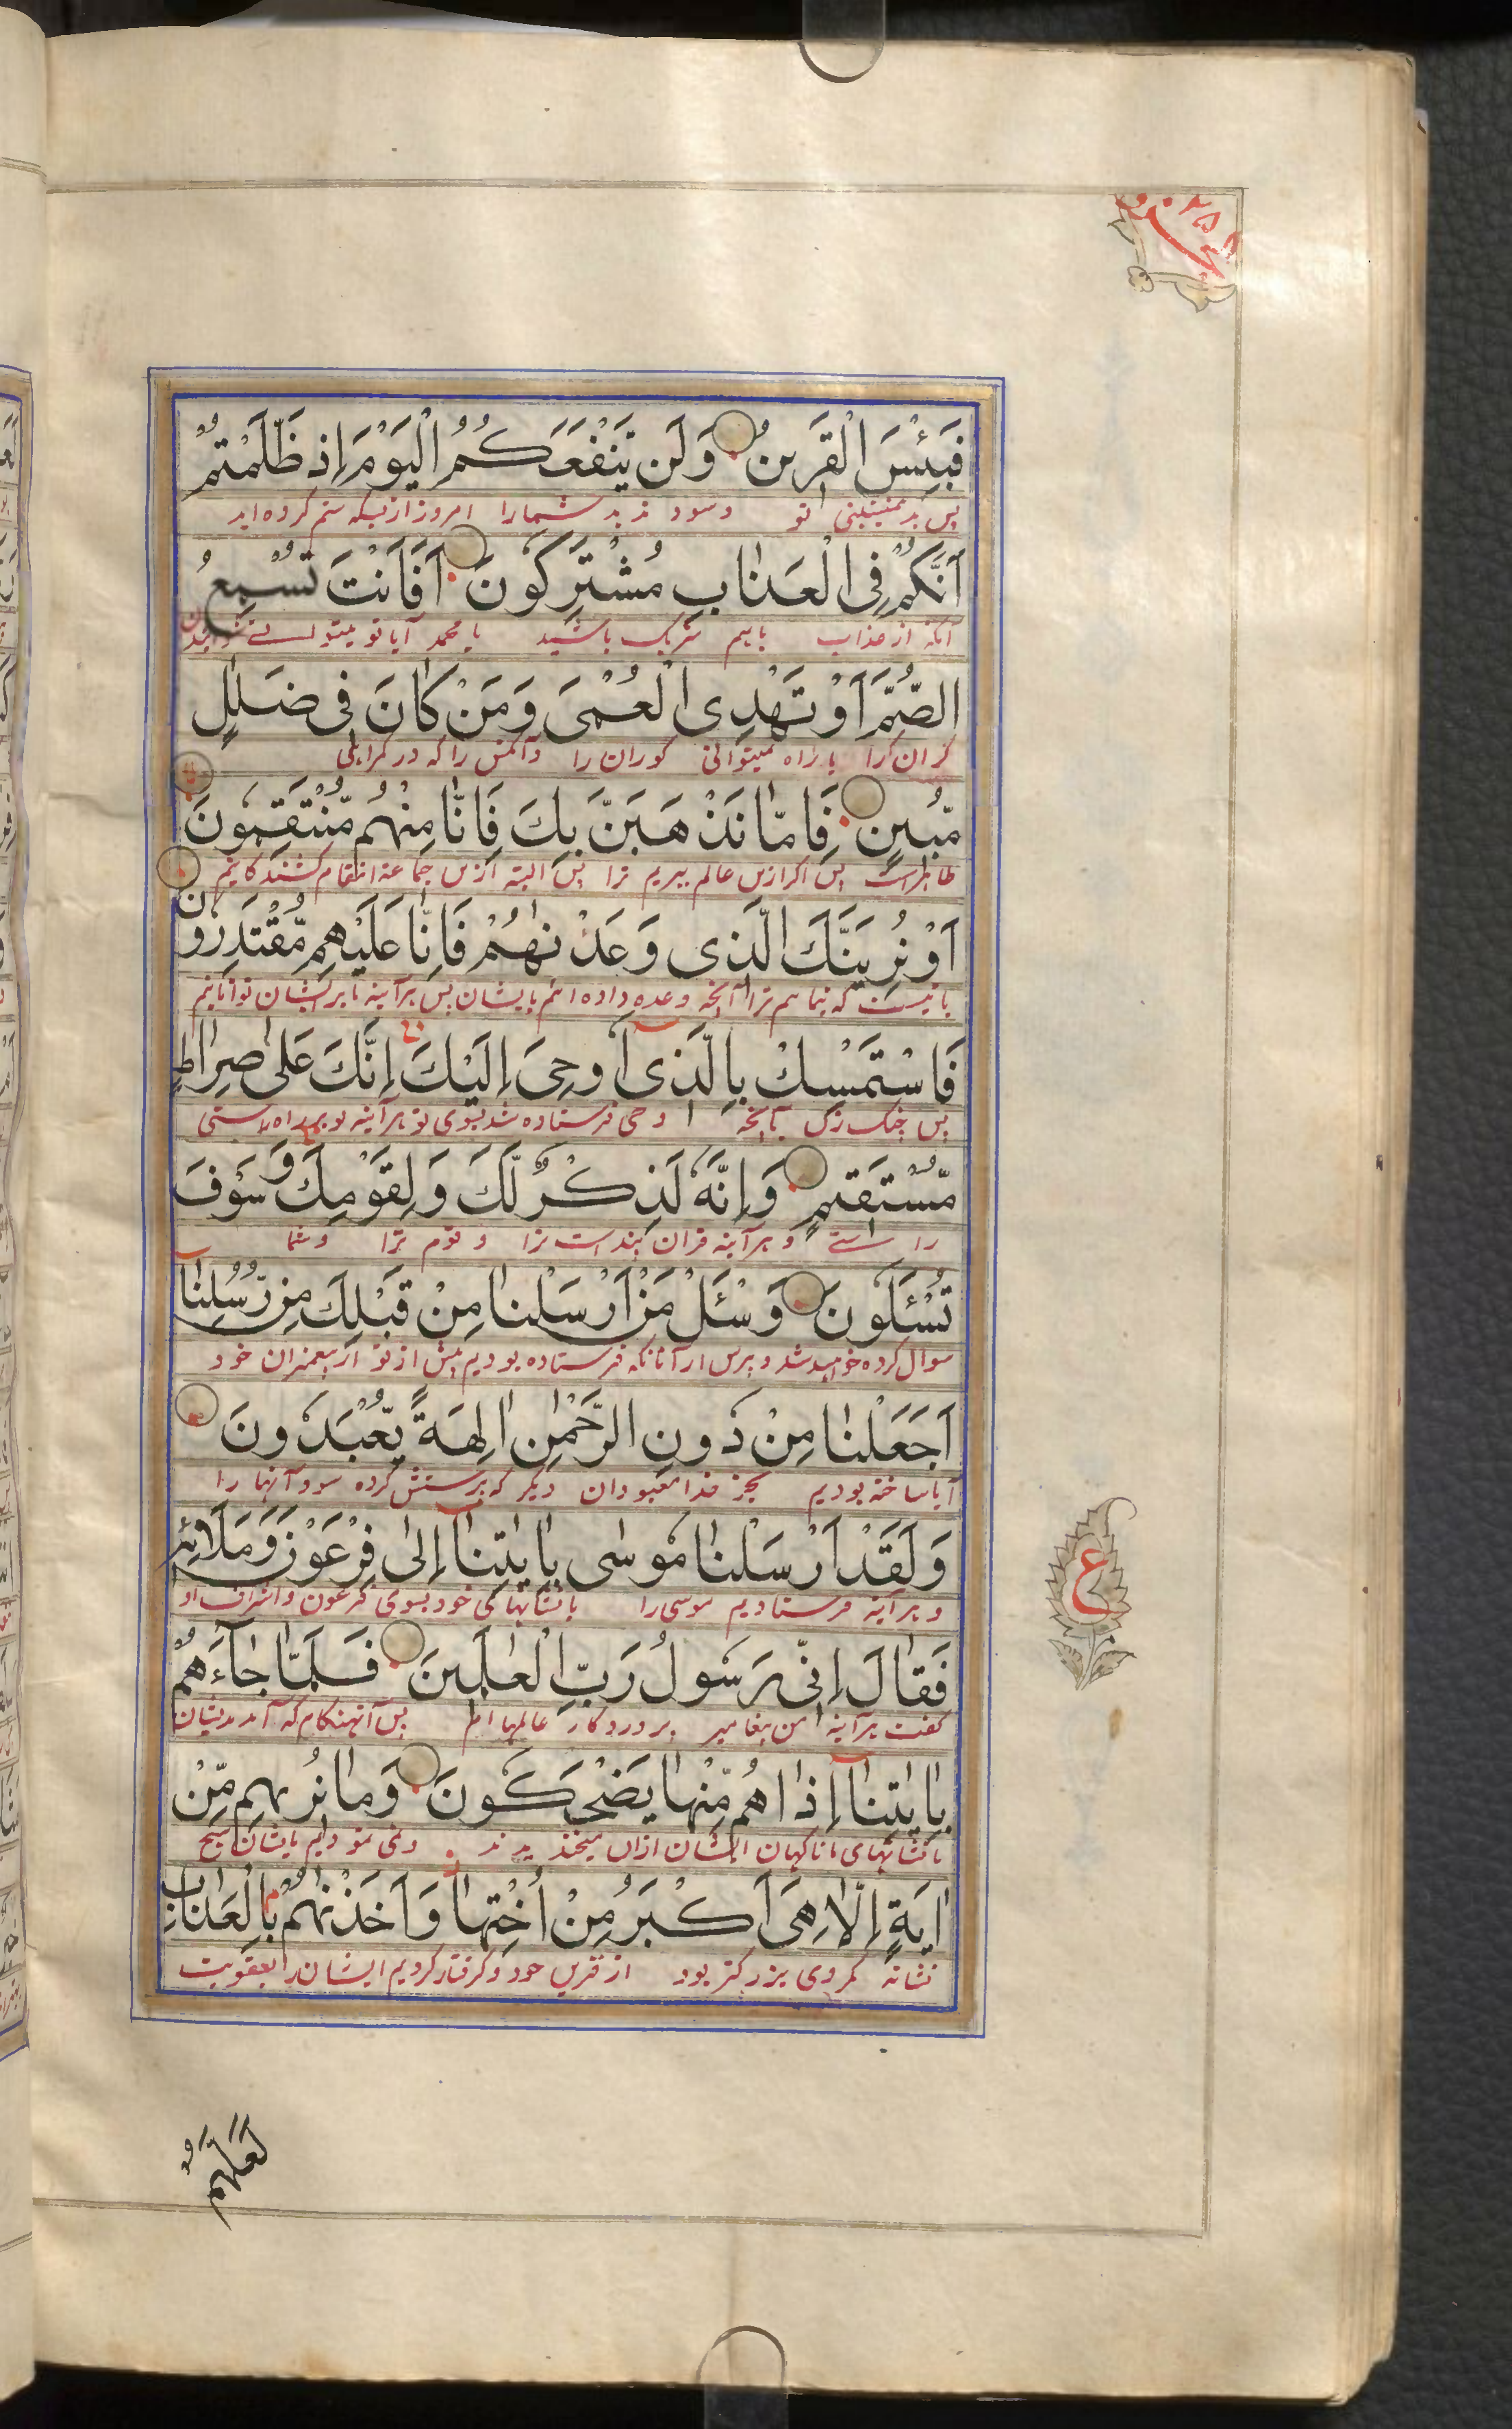 الجزو ٢٥
فَبِئْسَ الْقَرِينُ وَلَن يَّنْفَعَكُمُ الْيَوْمَ اِذ ظَّلَمْتُمْ
پس بد همنشینی تو وسود ندهد شمارا امروز ازبسکه ستم کرده اید
اَنَّكُمْ فِى الْعَذَابِ مُشْتَرِكُونَ اَفَاَنْتَ تُسْمِعُ
آنکه از عذاب باهم شریک باشید یا محمد آیا تو میتوانے
الصُّمَّ اَوْ تَهْدِى الْعُمْىَ وَمَنْ كَانَ فِى ضَلٰلٍ
کران را یا راه میتوانی کوران را وآنکس را که در کمراهی
مُّبِينٍ فَاِمَّا نَذْهَبَنَّ بِكَ فَاِنَّا مِنْهُم مُّنْتَقِمُونَ
ظاهراست پس اکر ازین عالم ببریم ترا پس البته ازین جماعة انتقام کشنده کانیم
اَوْ نُرِيَنَّكَ الَّذِى وَعَدْنٰهُمْ فَاِنَّا عَلَيْهِم مُّقْتَدِرُونَ
یا نیست که بنمایم ترا آنچه وعده داده ایم بایشان پس هرآینه ما بر ایشان توانایم
فَاسْتَمْسِكْ بِالَّذِىٓ اُوحِىَ اِلَيْكَ اِنَّكَ عَلٰى صِرَاطٍ
پس چنک زن بآنچه وحی فرستاده شد بسوی تو هرآینه تو بر راه راستی
مُّسْتَقِيمٍ وَاِنَّهٗ لَذِكْرٌ لَّكَ وَلِقَوْمِكَ وَسَوْفَ
را ستے و هرآینه قران پند است ترا و قوم ترا و شما
تُسْئَلُونَ وَسْئَلْ مَنْ اَرْسَلْنَا مِنْ قَبْلِكَ مِن رُّسُلِنَا
سوال کرده خواهید شد و بپرس از آنانکه فرستاده بودیم پیش از تو از پیغمبران خود
اَجَعَلْنَا مِنْ دُونِ الرَّحْمٰنِ اٰلِهَةً يُّعْبَدُونَ
آیا ساخته بودیم بجز خدا معبودان دیکر که پرستش کرده سود آنها را
وَلَقَدْ اَرْسَلْنَا مُوسٰى بِاٰيٰتِنَآ اِلٰى فِرْعَوْنَ وَمَلَائِهٖ
و هرآینه فرستادیم موسی را با نشانهای خود بسوی فرعون واشراف او
فَقَالَ اِنِّى رَسُولُ رَبِّ الْعٰلَمِينَ فَلَمَّا جَآءَهُمْ
کفت هرآینه من پیغامبر پروردکار عالمها ام پس آنهنکام که آمد بدیشان
بِاٰيٰتِنَآ اِذَا هُمْ مِّنْهَا يَضْحَكُونَ وَمَا نُرِيهِم مِّنْ
با نشانهای ما ناکهان ایشان ازان میخندیدند ونمی نمودیم بایشان هیچ
اٰيَةٍ اِلَّا هِىَ اَكْبَرُ مِنْ اُخْتِهَا وَاَخَذْنٰهُمْ بِالْعَذَابِ
نشانه مکر وی بزرکتر بود از قرین خود و کرفتار کردیم ایشان را بعقوبت
ع
لَعَلَّهُمْ